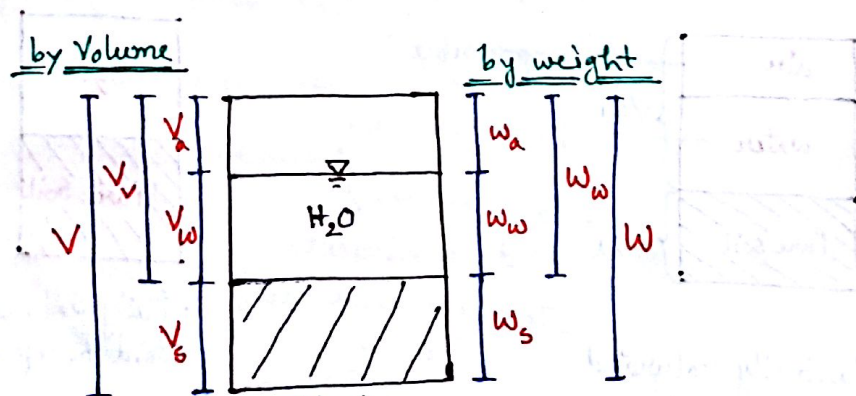 by Volume
by weight
V
V_v
V_a
V_w
V_s
H₂O
W_a
W_w
W_s
W_w
W